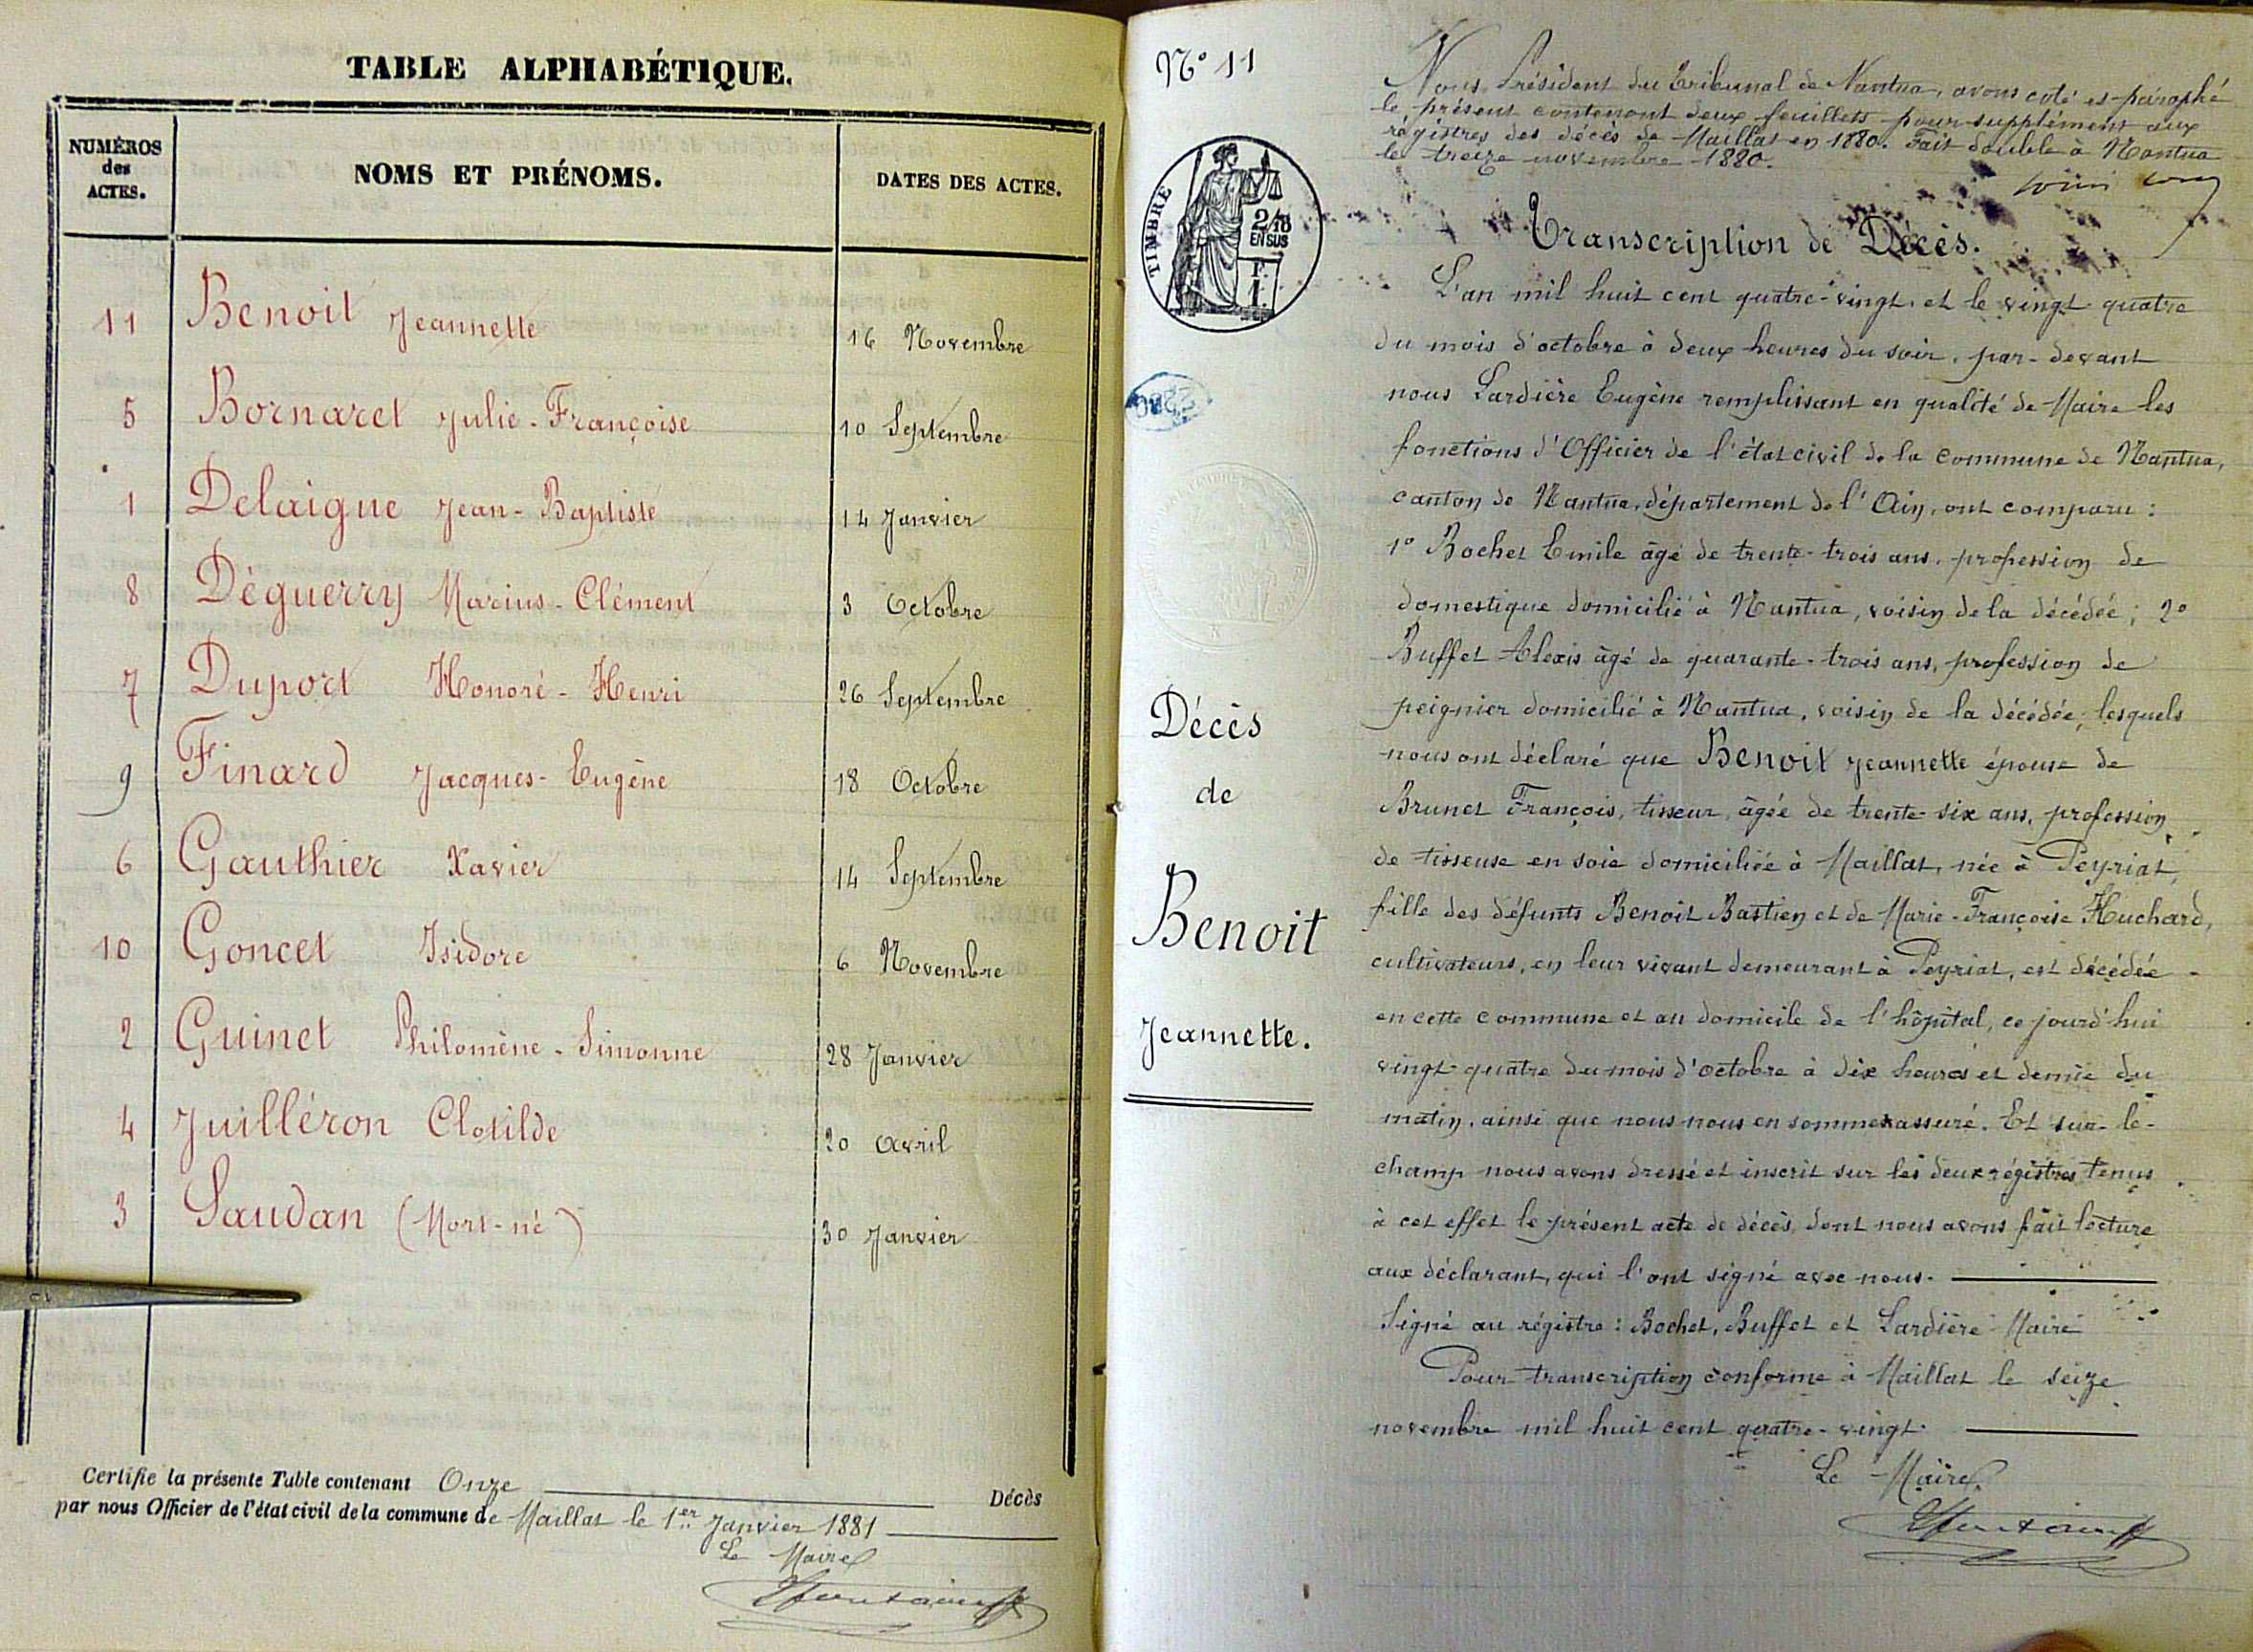 TABLE ALPHABÉTIQUE.
NUMÉROS des ACTES.
NOMS ET PRÉNOMS.
DATES DES ACTES.
11 Benoit Jeannette 16 Novembre
5 Bornaret Julie-Françoise 10 Septembre
1 Delaigue Jean-Baptiste 14 Janvier
8 Déguerry Marius-Clément 3 Octobre
7 Duport Honoré-Henri 26 Septembre
9 Finard Jacques-Eugène 18 Octobre
6 Gauthier Xavier 14 Septembre
10 Goncet Isidore 6 Novembre
2 Guinet Philomène-Simonne 28 Janvier
4 Juilléron Clotilde 20 Avril
3 Saudan (Mort-né) 30 Janvier
Certifie la présente Table contenant Onze Décès
par nous Officier de l'état civil de la commune de Maillat le 1er Janvier 1881
Le Maire
N° 11
Nous Président du Tribunal de Nantua, avons coté et paraphé
le présent contenant deux feuillets pour supplément aux
régistres des décès de Maillat en 1880. Fait double à Nantua
le treize novembre 1880.
TIMBRE
2/10
EN SUS
Transcription de Décès.
L'an mil huit cent quatre-vingt et le vingt quatre
du mois d'octobre à deux heures du soir, par-devant
nous Lardière Eugène remplissant en qualité de Maire les
fonctions d'Officier de l'état civil de la commune de Nantua,
canton de Nantua, département de l'Ain, ont comparu :
1° Bochet Emile âgé de trente-trois ans, profession de
domestique domicilié à Nantua, voisin de la décédée ; 2°
Buffet Alexis âgé de quarante-trois ans, profession de
peignier domicilié à Nantua, voisin de la décédée, lesquels
nous ont déclaré que Benoit Jeannette épouse de
Brunet François, tisseur, âgée de trente-six ans, profession
de tisseuse en soie domiciliée à Maillat, née à Peyriat,
fille des défunts Benoit Bastien et de Marie-Françoise Huchard,
cultivateurs, en leur vivant demeurant à Peyriat, est décédée
en cette commune et au domicile de l'hôpital, ce jourd'hui
vingt-quatre du mois d'octobre à dix heures et demie du
matin, ainsi que nous nous en sommes assuré. Et sur-le-
champ nous avons dressé et inscrit sur les deux régistres tenus
à cet effet le présent acte de décès, dont nous avons fait lecture
aux déclarant, qui l'ont signé avec nous.
Signé au régistre : Bochet, Buffet et Lardière Maire
Pour transcription conforme à Maillat le seize
novembre mil huit cent quatre-vingt.
Le Maire
Décès
de
Benoit
Jeannette.